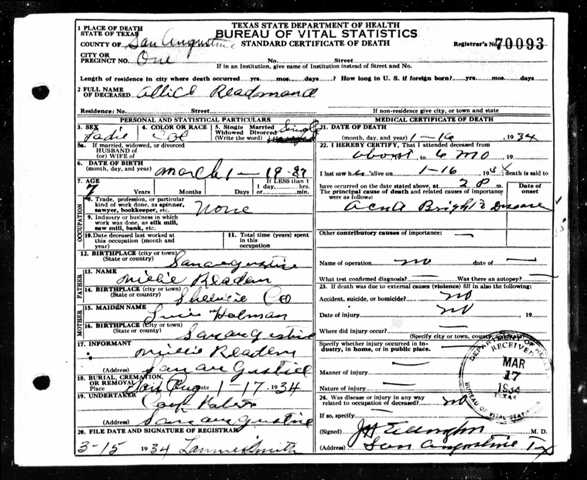 TEXAS STATE DEPARTMENT OF HEALTH
BUREAU OF VITAL STATISTICS
STANDARD CERTIFICATE OF DEATH
1 PLACE OF DEATH
STATE OF TEXAS
COUNTY OF San Augustine
Registrar's No. 70093
CITY OR
PRECINCT NO. One No. Street
If in an Institution, give name of Institution instead of Street and No.
Length of residence in city where death occurred yrs. mos. days. How long in U. S. if foreign born? yrs. mos. days
2 FULL NAME
OF DECEASED Readmand
Residence: No. Street
If non-residence give city, or town and state
PERSONAL AND STATISTICAL PARTICULARS
3. SEX
4. COLOR OR RACE
5. Single
Married
Widowed
Divorced
(Write the word) Single
5a. If married, widowed or divorced
HUSBAND OF
(or) WIFE OF
6. DATE OF BIRTH
(month, day, and year) March 1-19-27
7. AGE
7 Years Months Days
If LESS than
1 day,
hrs.
or min.
OCCUPATION
8. Trade, profession, or particular
kind of work done, as spinner,
sawyer, bookkeeper, etc. None
9. Industry or business in which
work was done, as silk mill,
saw mill, bank, etc.
10. Date deceased last worked at
this occupation (month and
year)
11. Total time (years)
spent in this
occupation
12. BIRTHPLACE (city or town)
(State or country) San Augustine
FATHER
13. NAME
14. BIRTHPLACE (city or town)
(State or country) Co
MOTHER
15. MAIDEN NAME Holman
16. BIRTHPLACE (city or town)
(State or country) San Augustine
17. INFORMANT
(Address) San Augustine
18. BURIAL, CREMATION,
OR REMOVAL
Place Date 1-17-34
19. UNDERTAKER
(Address) San Augustine
20. FILE DATE AND SIGNATURE OF REGISTRAR
3-15 1934 Smith
MEDICAL CERTIFICATE OF DEATH
21. DATE OF DEATH
(month, day, and year) 1-16 1934
22. I HEREBY CERTIFY, That I attended deceased from
about to 6 mo 19
I last saw h alive on 1-16 1934 death is said to
have occurred on the date stated above, at 2 P m.
The principal cause of death and related causes of importance
were as follows:
Date of
onset
Acute Bright's Disease
Other contributory causes of importance:
Name of operation no date of
What test confirmed diagnosis? Was there an autopsy?
23. If death was due to external causes (violence) fill in also the following:
Accident, suicide, or homicide? no
Date of injury no 19
Where did injury occur?
(Specify city or town, county, and State)
Specify whether injury occurred in
industry, in home, or in public place.
Manner of injury
Nature of injury
24. Was disease or injury in any way
related to occupation of deceased? no
If so, specify
(Signed) M. D.
(Address) San Augustine Tx
RECEIVED
MAR
17
1934
TEXAS
BUREAU OF VITAL STATISTICS